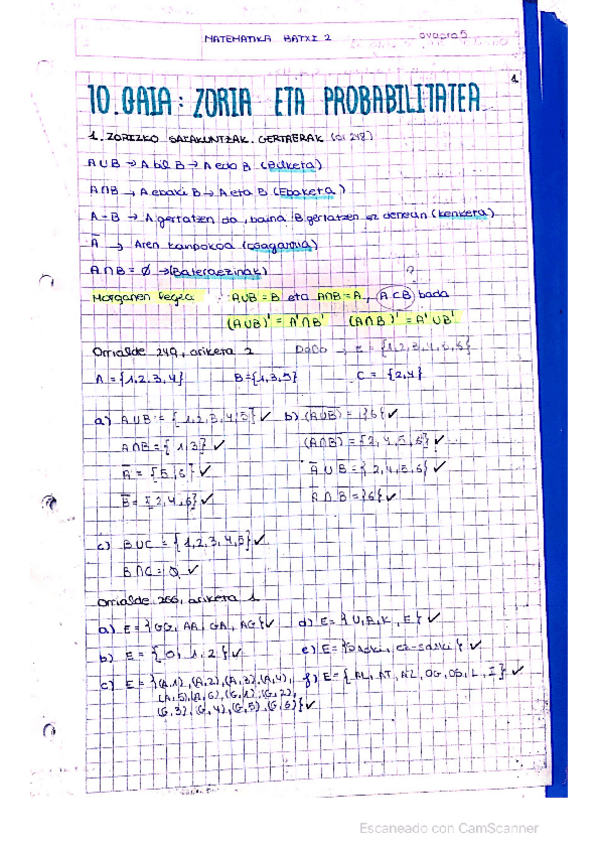 MATEMATIKA BATXI 2
1
10. GAIA: ZORIA ETA PROBABILITATEA
1. ZORIZKO SAIAKUNTZAK. GERTAERAK (or 248)
A∪B → A bil B → A edo B (Bilketa)
A∩B → A ebaki B → A eta B (Ebaketa)
A-B → A gertatzen da, baina B gertatzen ez denean (kenketa)
A̅ → Aren kanpokoa (osagarria)
A∩B = ∅ → (Bateraezinak)
?
Morganen legea: A∪B = B eta A∩B = A, A⊂B bada
(A∪B)' = A'∩B' (A∩B)' = A'∪B'
Orrialde 249, ariketa 2 DADO → E = {1,2,3,4,5,6}
A = {1,2,3,4} B = {1,3,5} C = {2,4}
a) A∪B = {1,2,3,4,5} ✓ b) (A∪B)̅ = {6} ✓
A∩B = {1,3} ✓ (A∩B)̅ = {2,4,5,6} ✓
A̅ = {5,6} ✓ A̅∪B̅ = {2,4,5,6} ✓
B̅ = {2,4,6} ✓ A̅∩B̅ = {6} ✓
c) B∪C = {1,2,3,4,5} ✓
B∩C = ∅ ✓
Orrialde 266, ariketa 1
a) E = {GG, AA, GA, AG} ✓ d) E = {U,B,K,E} ✓
b) E = {0,1,2} ✓ e) E = {Saski, ez-saski} ✓
c) E = {(A,1),(A,2),(A,3),(A,4), f) E = {AL, AT, AZ, OG, OS, L, I} ✓
(A,5),(A,6),(G,1),(G,2),
(G,3),(G,4),(G,5),(G,6)} ✓
Escaneado con CamScanner